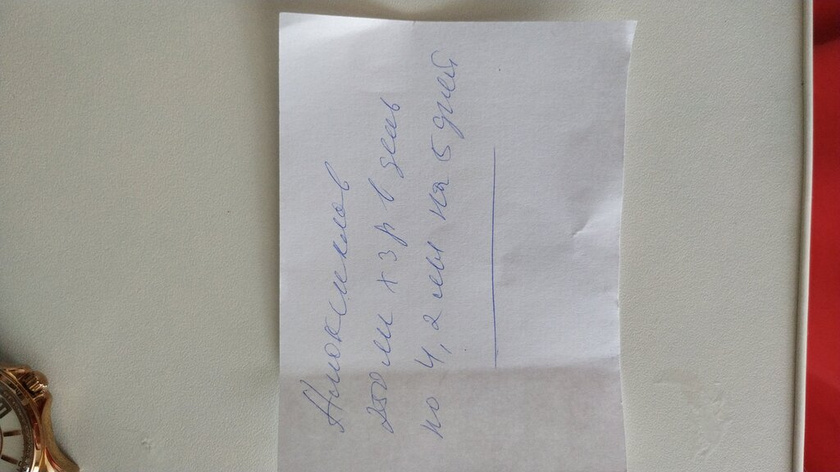 Амоксиклав
250 мл х 3 р в день
по 4,2 мл на 5 дней